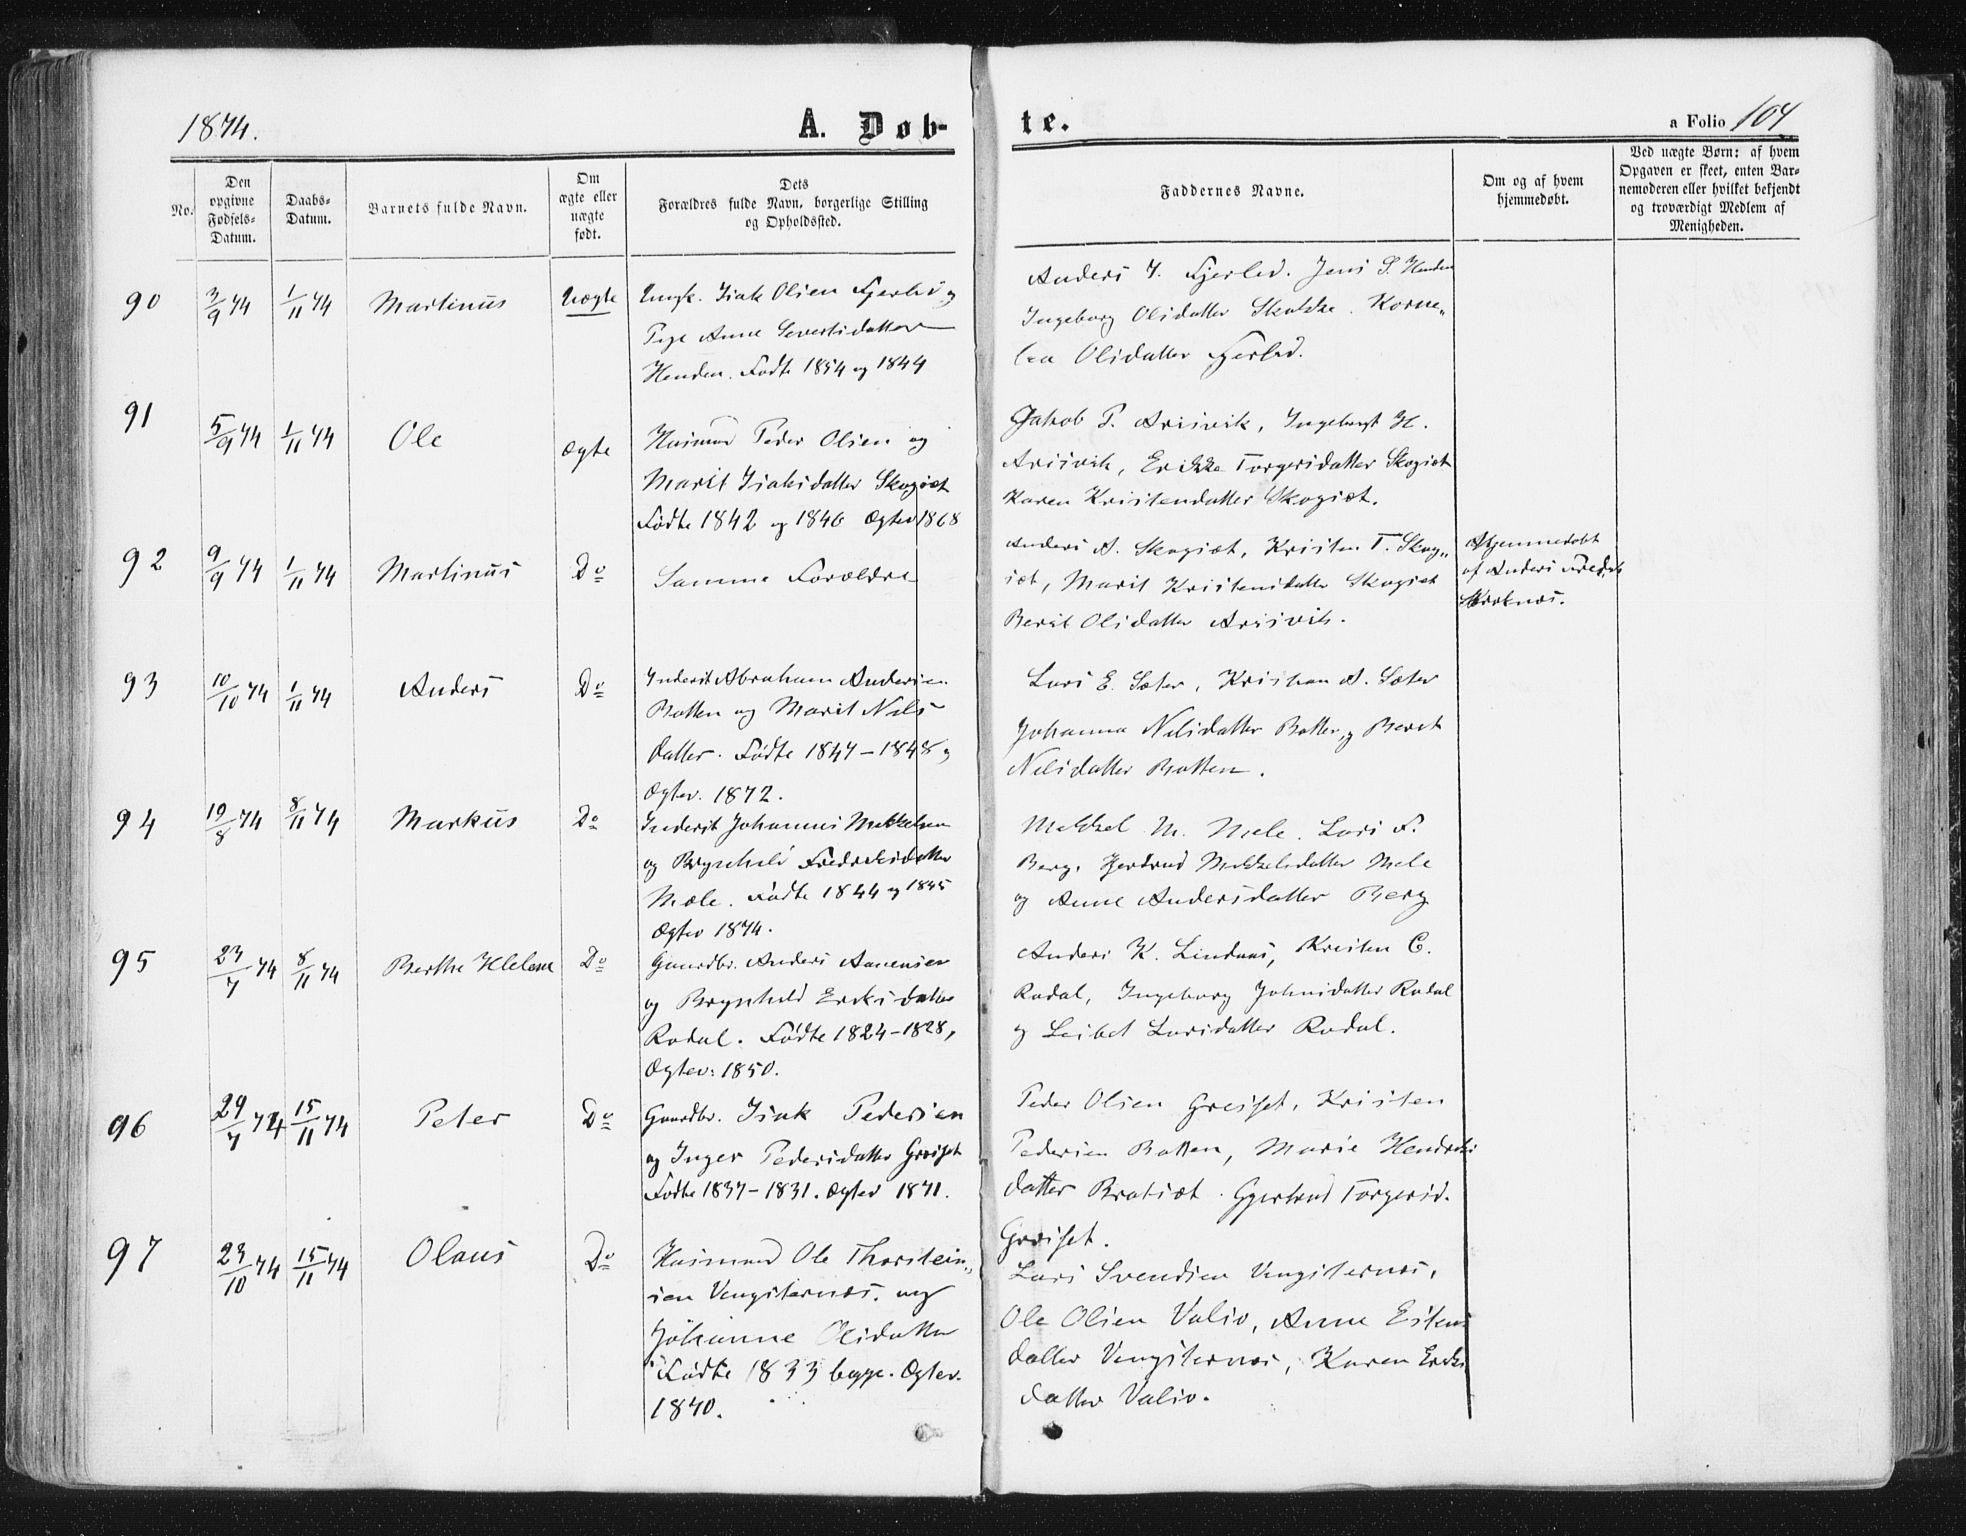 1874.
A. Døb-
te.
a Folio 104
No.
Den opgivne Fødsels-Datum.
Daabs-Datum.
Barnets fulde Navn.
Om ægte eller uægte født.
Dets Forældres fulde Navn, borgerlige Stilling og Opholdssted.
Faddernes Navne.
Om og af hvem hjemmedøbt.
Ved uægte Børn: af hvem Opgaven er skeet, enten Barnemoderen eller hvilket bekjendt og troværdigt Medlem af Menigheden.
90 3/9 74 1/11 74 Martinus Uægte
Ungk. Isak Olsen Fjerli og
Pige Anne Severtsdatter
Henden. Fødte 1854 og 1844
Ingeborg Olsdatter . Korne„
lia Olsdatter
91 5/9 74 1/11 74 Ole Ægte
Husmd Peder Olsen og
Marit Isaksdatter Skogset
Fødte 1842 og 1846 Ægtev 1868
Jakob P. Arsvik, Ingebrigt H.
Arsvik, Erikka Torgersdatter Skogset
Karen Kristendatter Skogset.
92 9/9 74 1/11 74 Martinus Do
Samme Forældre
Anders A. Skogset, Kristen T. Skog„
set, Marit Kristensdatter Skogset
Berit Olsdatter Arsvik.
Hjemmedøbt
af Anders
93 10/10 74 1/11 74 Anders Do
Inderst Abraham Andersen
Botten og Marit Nils
datter. Fødte 1847–1848 og
Ægtev. 1872.
Lars E. Sæter, Kristian A. Sæter
Johanna Nilsdatter Botten, og Berit
Nilsdatter Botten.
94 19/8 74 8/11 74 Markus Do
Inderst Johannes Mikkelsen
og Brynhild Fredriksdatter
Mele. Fødte 1844 og 1845
Ægtev 1874.
Mikkel M. Mele. Lars F.
Berg. Gjertrud Mikkelsdatter Mele
og Anne Andersdatter Berg
95 23/7 74 8/11 74 Berthe Helena Do
Gaardbr. Anders Aanensen
og Brynhild Eriksdatter
Rodal. Fødte 1824–1828,
Ægtev: 1850.
Anders K. Lindnæs, Kristen C.
Rodal, Ingeborg Johnsdatter Rodal
og Lisbet Larsdatter Rodal.
96 29/7 74 15/11 74 Peter Do
Gaardbr. Isak Pedersen
og Inger Pedersdatter Greiset
Fødte 1837–1831. Ægtev 1871.
Peder Olsen Greiset, Kristen
Pedersen Botten, Marie Hendriks
datter Bratset. Gjertrud Torgersd.
Greiset.
97 23/10 74 15/11 74 Olaus Do
Husmand Ole Thorstein„
sen Vengsternæs. og
Johanne Olsdatter
Fødte 1833 begge. Ægtev.
1870.
Lars Svendsen Vengsternæs,
Ole Olsen Valsø, Anne Estens
datter Vengsternæs, Karen Eriks
datter Valsø.